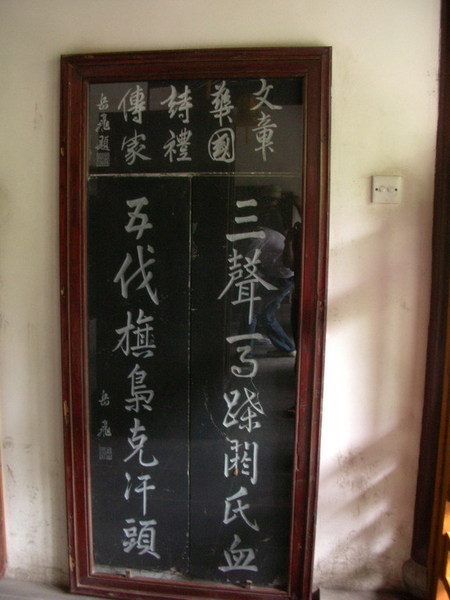 文章
華國
詩禮
傳家
岳飛題
三聲馬蹀閼氏血
五伐旗梟克汗頭
岳飛